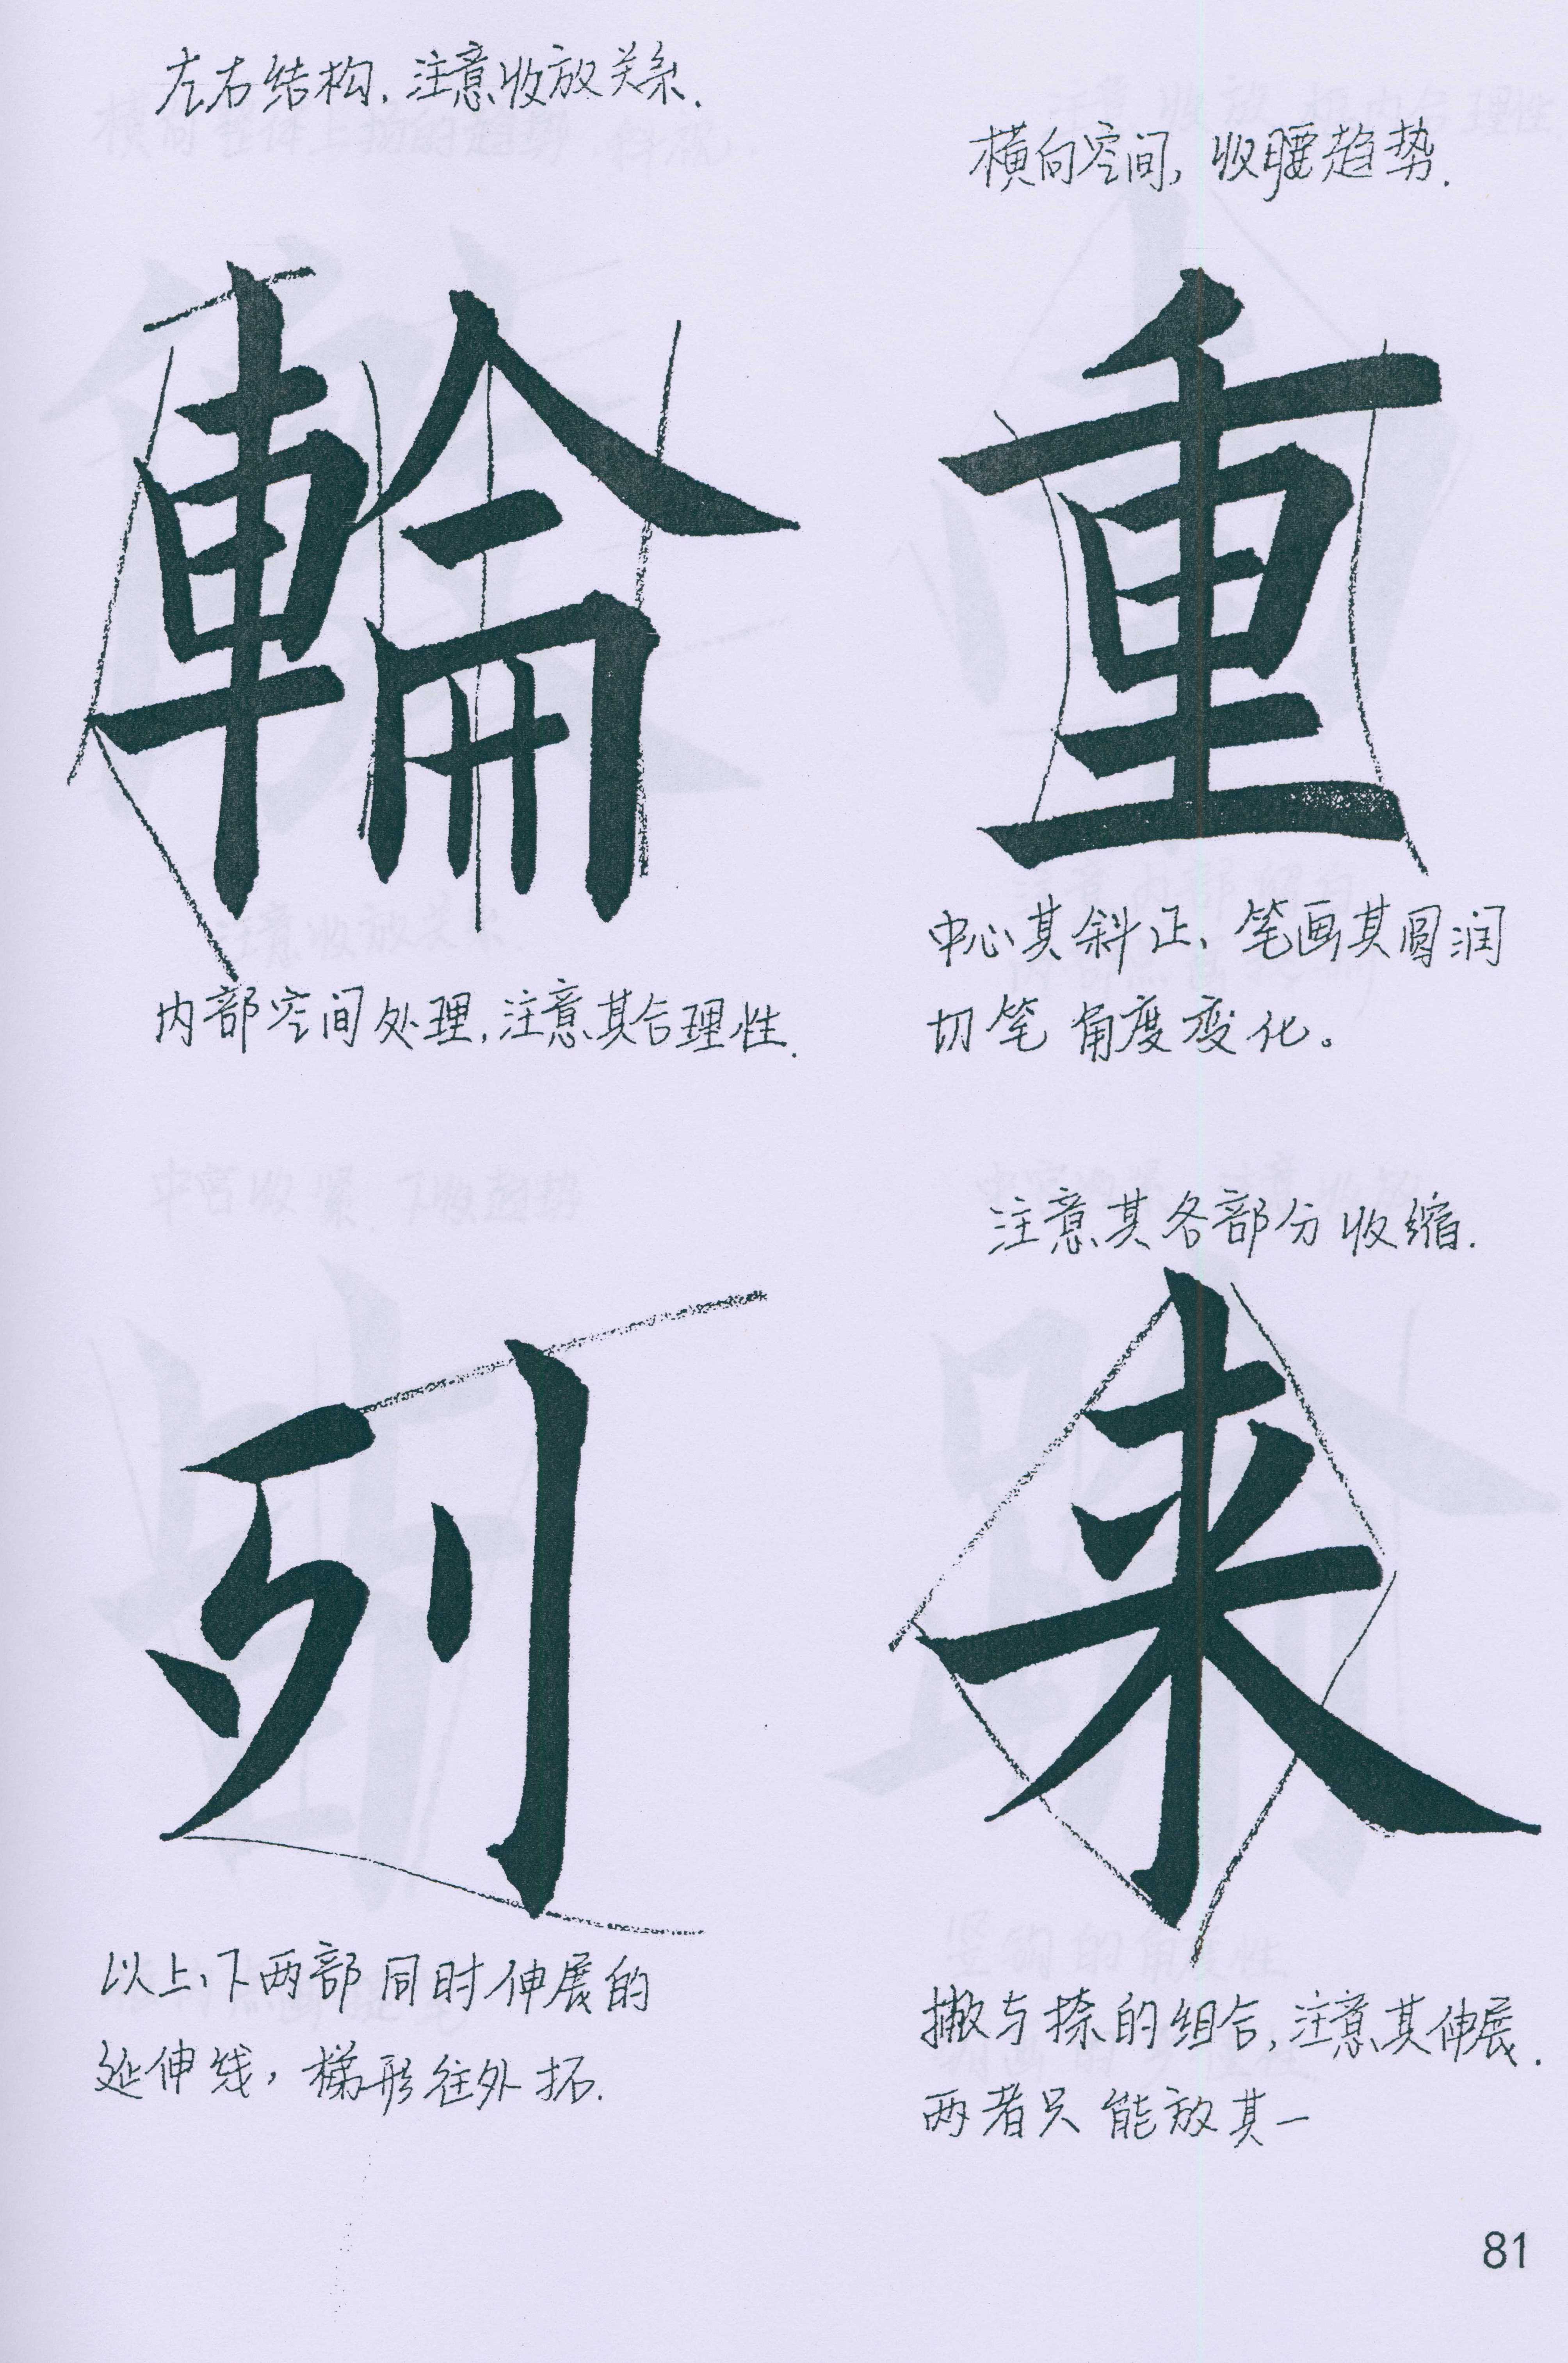 左右结构,注意收放关系.
横向空间,收腰趋势.
輪
重
内部空间处理,注意其合理性.
中心其斜正、笔画其圆润
切笔角度变化。
注意其各部分收缩.
列
来
以上、下两部同时伸展的
延伸线,梯形往外拓.
撇与捺的组合,注意其伸展.
两者只能放其一
81